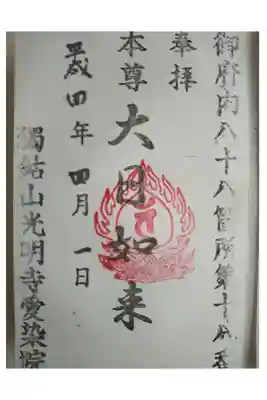 御府内八十八箇所第十八番
奉拝
本尊
大日如来
平成四年四月一日
獨鈷山光明寺愛染院